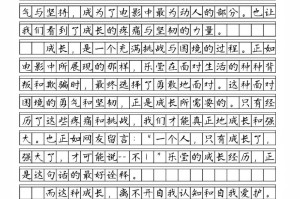 气与坚持，成为了电影中最为动人的部分。也让
我们看到了成长的疼痛与坚韧的力量。
成长，是一个充满挑战与困境的过程。正如
电影中所展现的那样，乐莹在面对生活的种种背
叛和欺骗时，最终选择了勇敢地面对。这种面对
困境的勇气和坚韧，正是成长所需要的。只有经
历了这些疼痛和挑战，我们才能真正地成长和强
大。也正如网友留言：“一个人，只有成长了，
强大了，才可能说一不！”乐莹的成长经历，正
是这句话的最好诠释。
而这种成长，离不开自我认知和自我爱护。